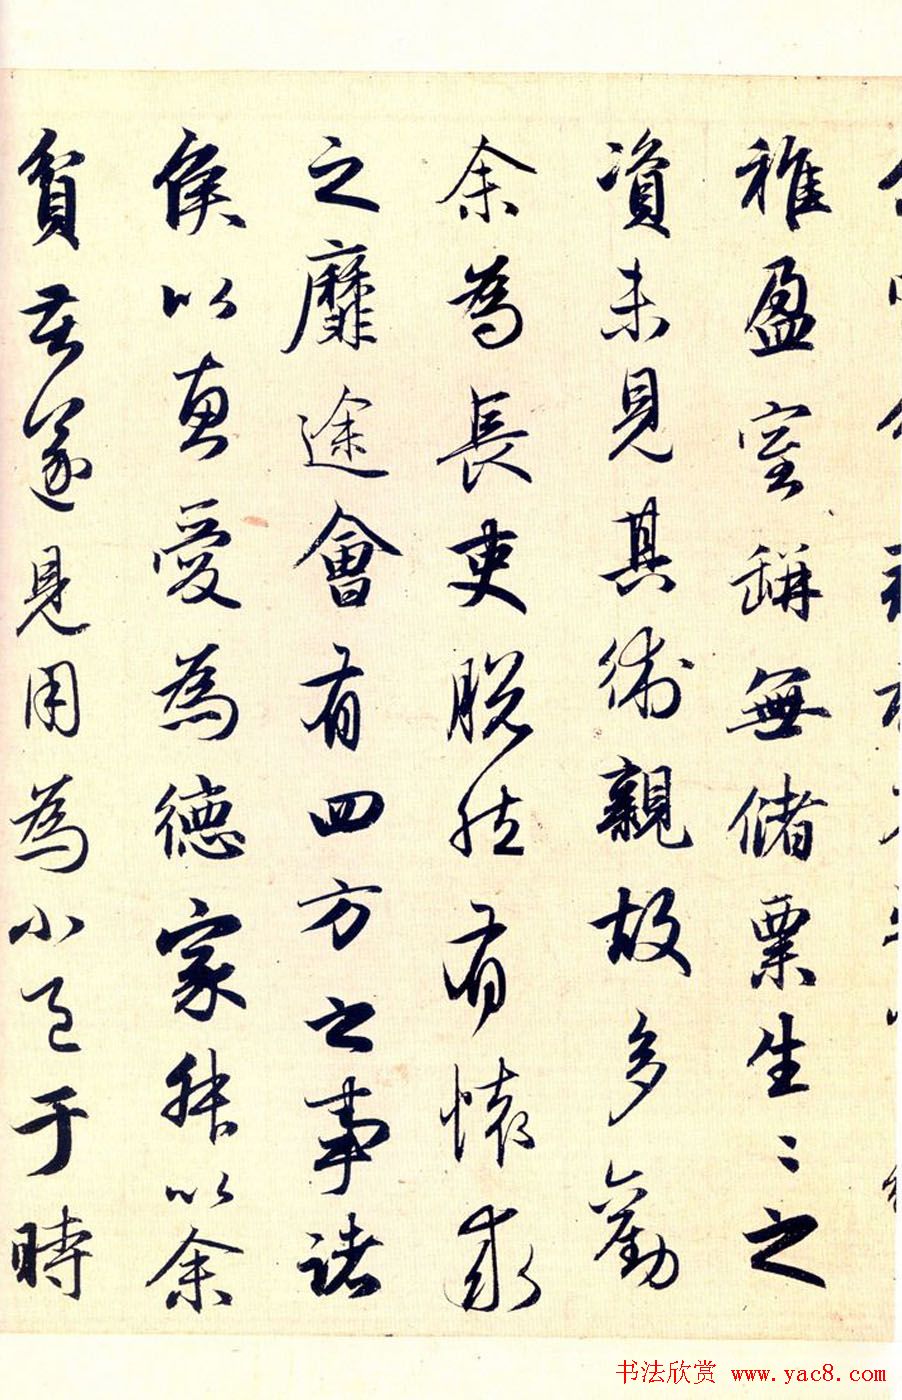 稚盈室缾無儲粟生〻之
資未見其術親故多勸
余為長吏脱然有懷求
之靡途會有四方之事諸
侯以惠愛為德家叔以余
貧苦遂見用為小邑于時
书法欣赏 www.yac8.com